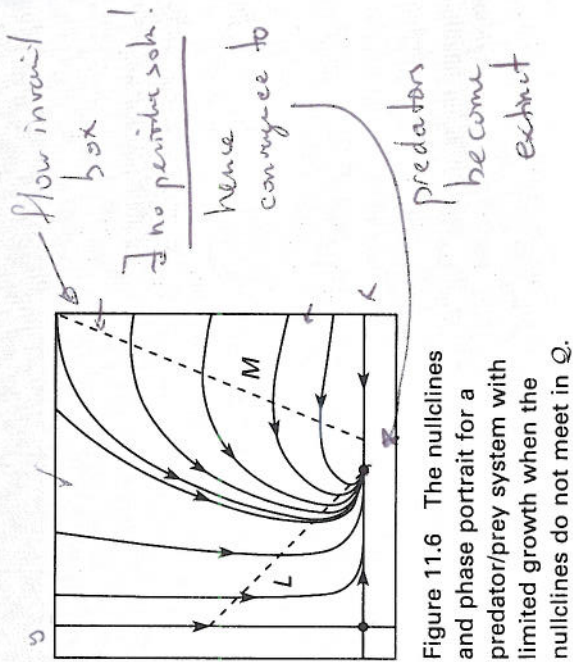 flow invariant
box
∃ no periodic soln!
hence
convergence to
predators
become
extinct
y
b
M
L
K
Figure 11.6 The nullclines
and phase portrait for a
predator/prey system with
limited growth when the
nullclines do not meet in Q.